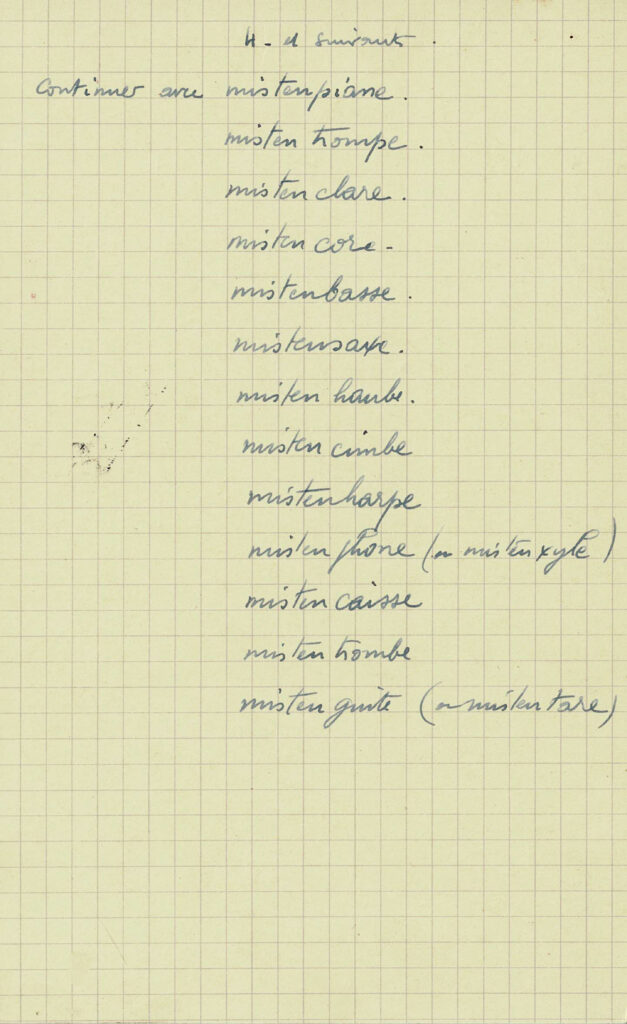 4 - et suivants.
Continuer avec mistenpiane.
misten trompe.
misten clare.
misten core -
mistenbasse.
mistensaxe.
misten haube.
misten cimbe
mistenharpe
misten phone (ou mistenxyle)
misten caisse
misten trombe
misten guite (ou mistentare)